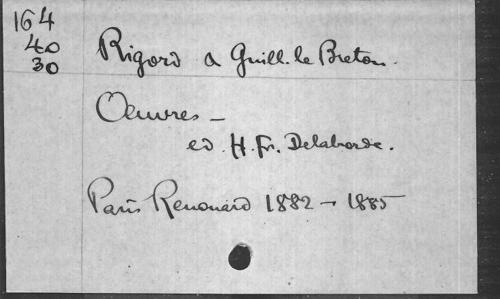 164
40
30
Rigord a Guill. le Breton.
Oeuvres -
ed H. Fr. Delaborde.
Paris Renouard 1882 - 1885